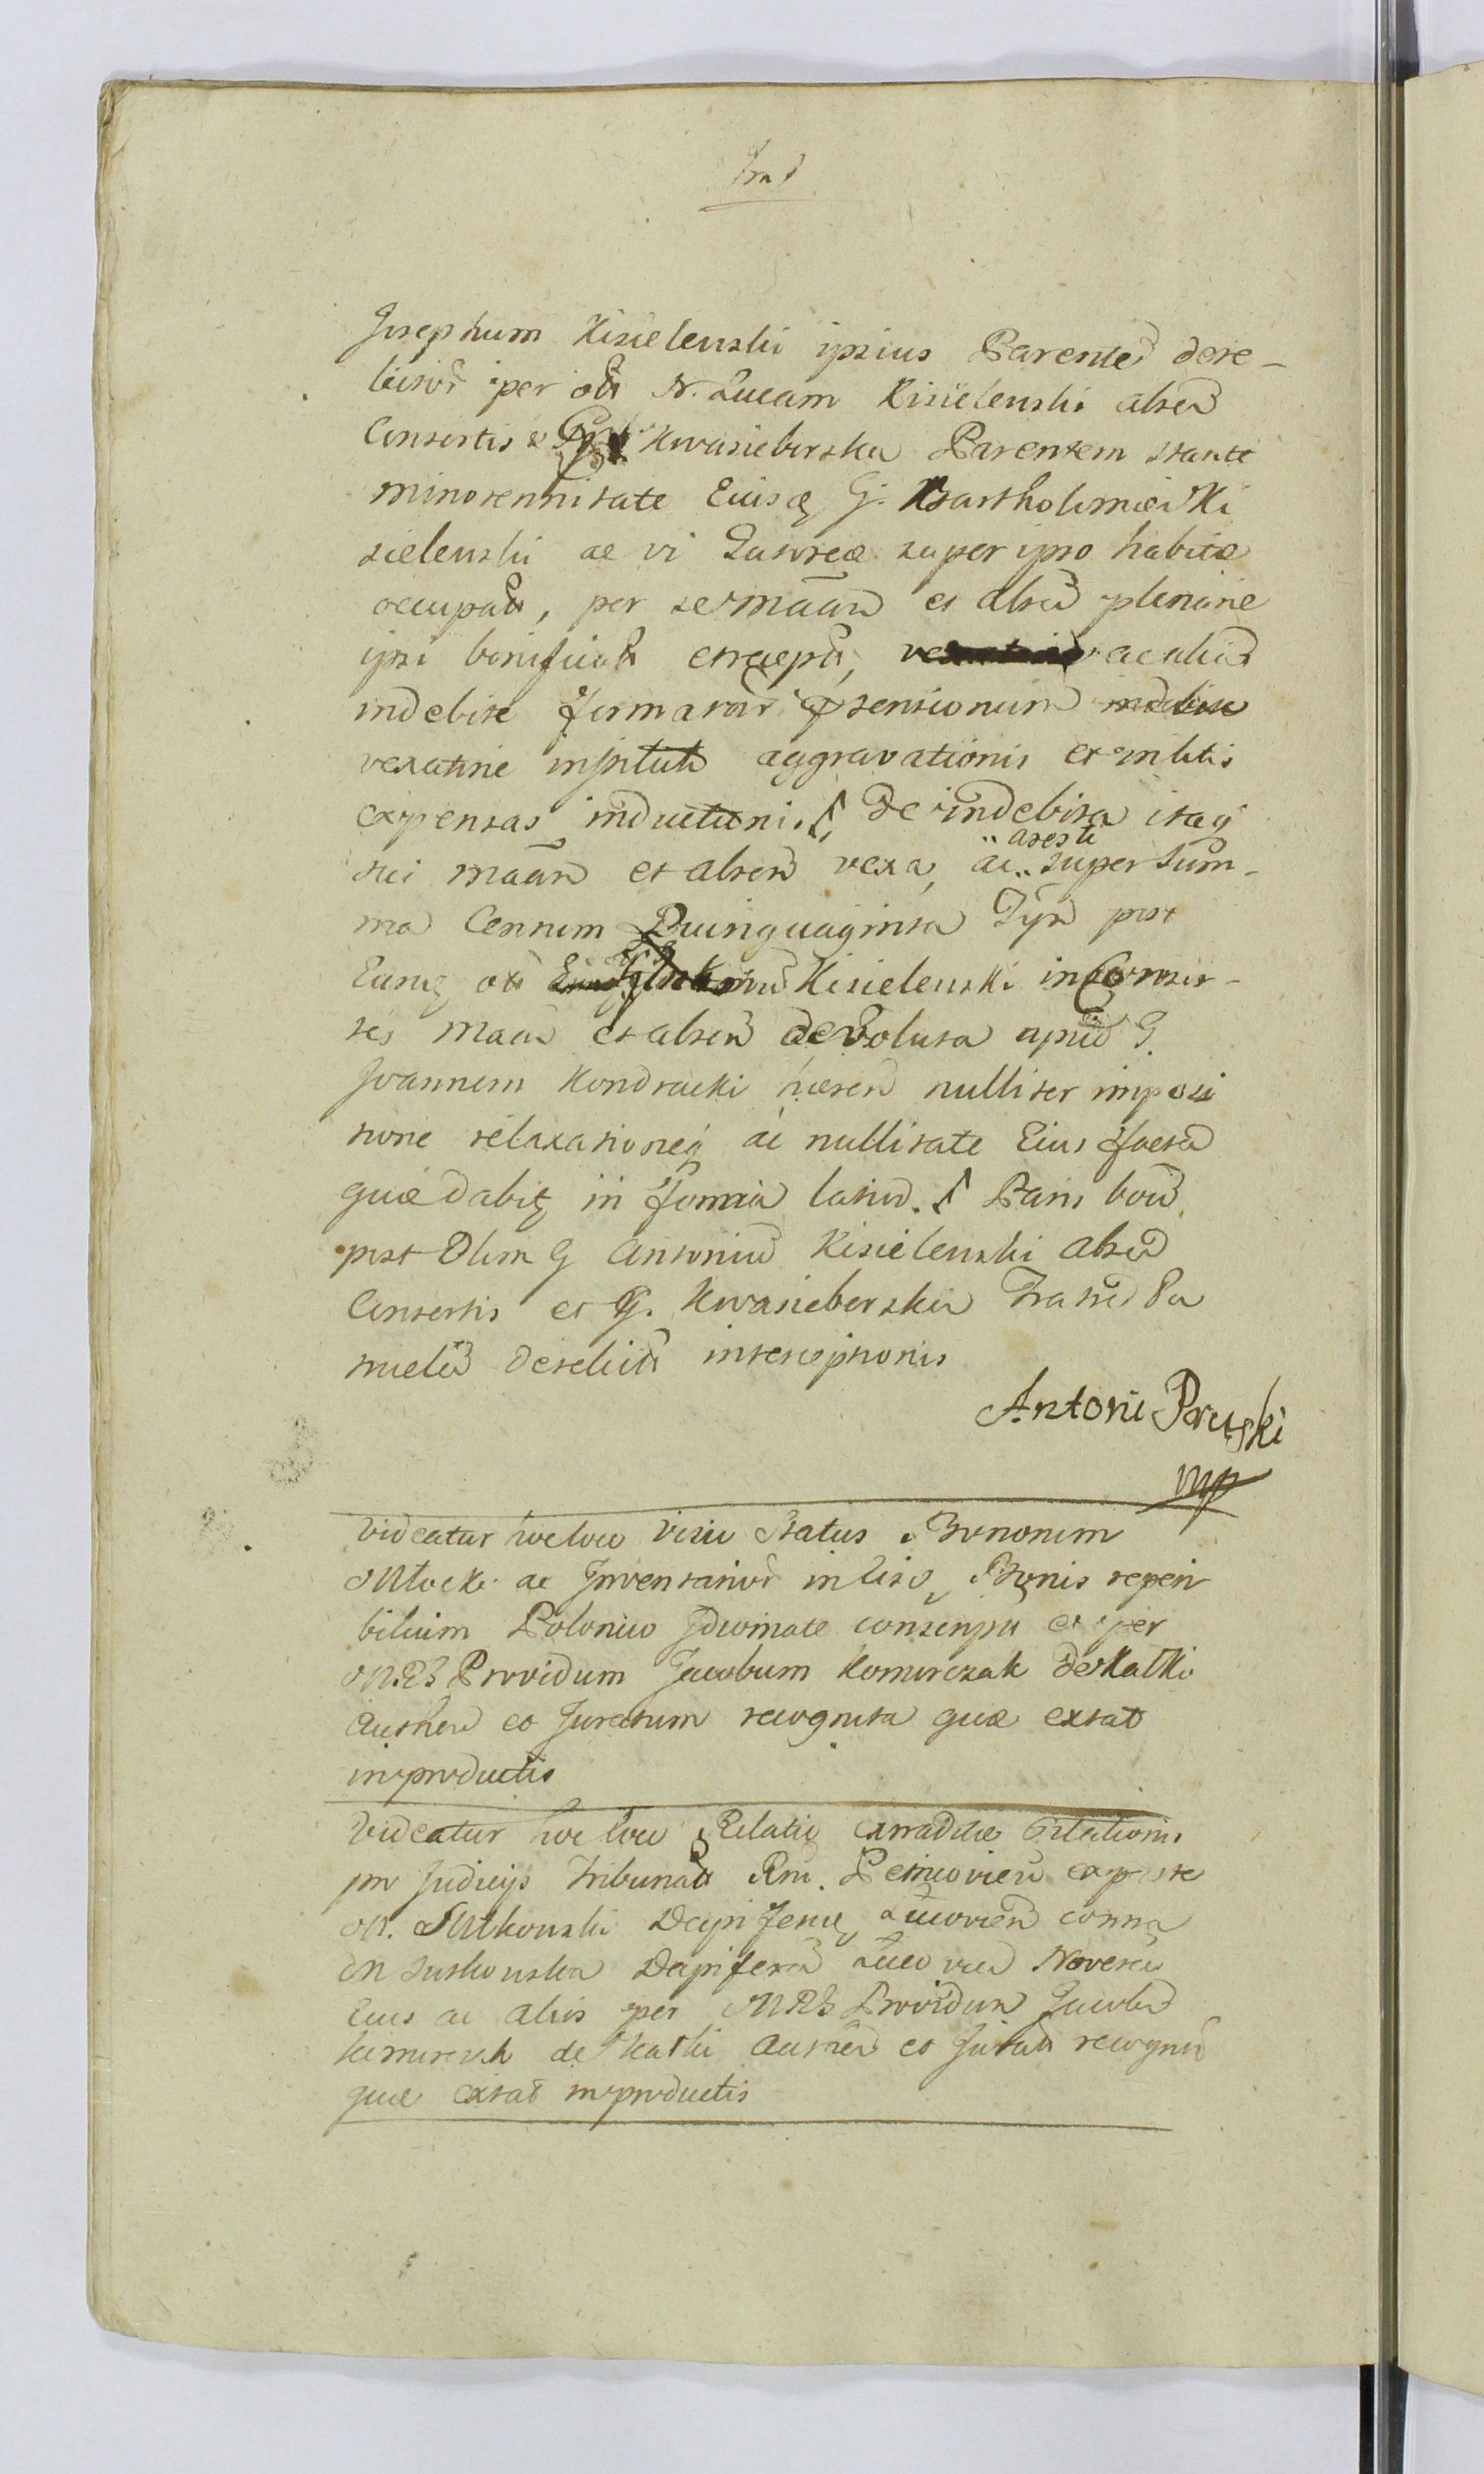 Josephum Kisielenski ipsius Parente dere-
lictor per N. Lucam Kisielenski absen
Consortis & Kwasieborska Parentem stante
minorennitate Eiusq G. Bartholomæi Ki
sielenski ac vi Tutoreæ super ipso habitæ
occupat, per se Maan et absen plenarie
ipsi bonificat except, ac alias
indebite formatar ptensionum indebite
vexatine instituti aggravationis et in litis
expensas inductionis De indebita itaq
sui maan et absen vexa, ac areste super Sum-
ma Centum Quinquaginta Tyn post
Eunq Kisielenski in Consor-
tes maan et absen devoluta apud G.
Joannem Kondracki hæren nulliter imposi
tione relaxationeq ac nullitate Eius facta
quæ dabit in forma latior. Paris bon
post Olim G Antonium Kisielenski absen
Consortis et G. Kwasieborska Fratrem Pa
truelem derelicti interceptionis
Antoni Pruski
mp
Videatur hoc loco Visio Status Bonorum
Mlocki ac Inventarior in iisd Bonis reperi
bilium Polonico Idiomate conscript et per
MRS Providum Jacobum Komorczak de Kałki
Authen et Juratum recognita quæ extat
in productis
Videatur hoc loco Relatio Extraditæ Citationis
pro Judicijs Tribunal Rni. Petricovien ex parte
M. Sutkowski Dapiferiq Lucovien contra
M Sutkowska Dapifera Lucovien Noverca
Eius ac alios per MRS Providum Jacobum
Komorczak de Kałki Authen et Jurat recognit
quæ extat in productis